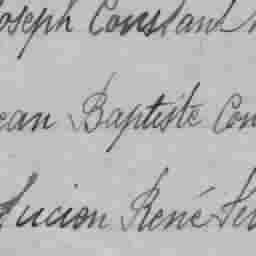 Joseph Constant
ean Baptiste Con
Lucien René